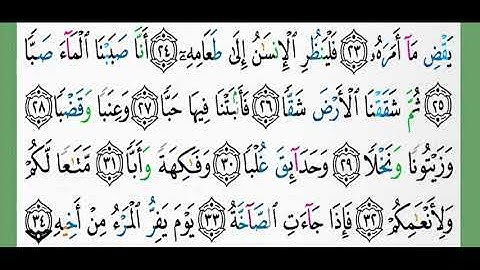 يَقْضِ مَآ أَمَرَهُۥ ٢٣ فَلْيَنظُرِ الْإِنسَٰنُ إِلَىٰ طَعَامِهِۦٓ ٢٤ أَنَّا صَبَبْنَا الْمَآءَ صَبًّا
٢٥ ثُمَّ شَقَقْنَا الْأَرْضَ شَقًّا ٢٦ فَأَنۢبَتْنَا فِيهَا حَبًّا ٢٧ وَعِنَبًا وَقَضْبًا ٢٨
وَزَيْتُونًا وَنَخْلًا ٢٩ وَحَدَآئِقَ غُلْبًا ٣٠ وَفَٰكِهَةً وَأَبًّا ٣١ مَّتَٰعًا لَّكُمْ
وَلِأَنْعَٰمِكُمْ ٣٢ فَإِذَا جَآءَتِ الصَّآخَّةُ ٣٣ يَوْمَ يَفِرُّ الْمَرْءُ مِنْ أَخِيهِ ٣٤